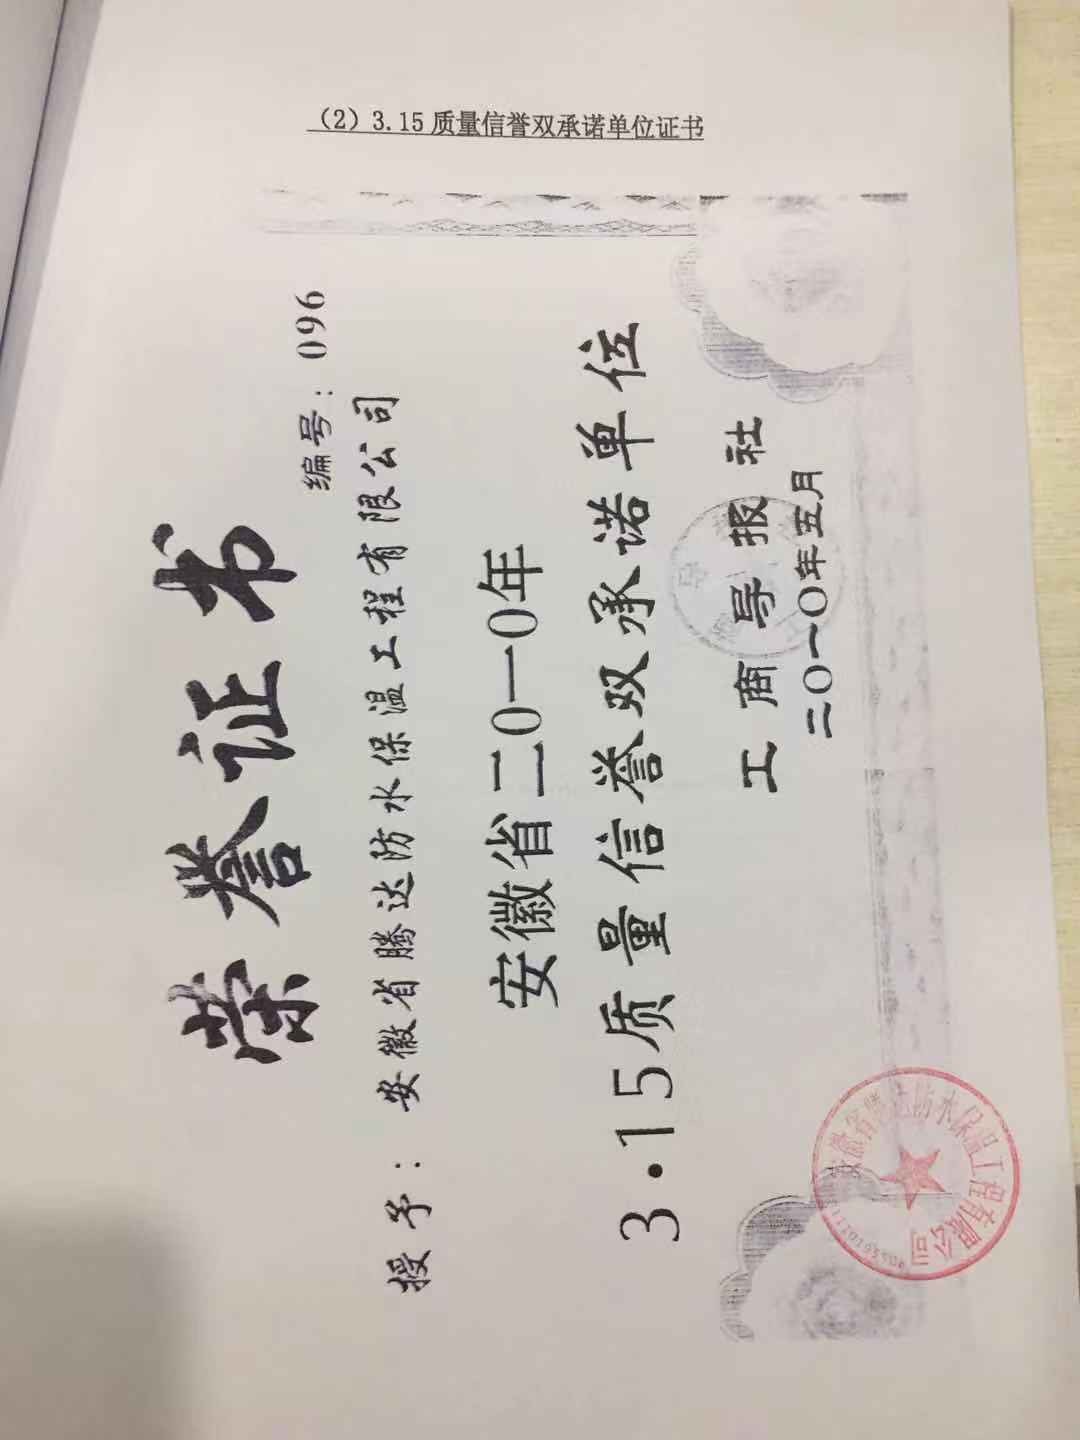 （2）3.15质量信誉双承诺单位证书
荣誉证书
编号：096
授予：安徽省腾达防水保温工程有限公司
安徽省二〇一〇年
3·15质量信誉双承诺单位
工商导报社
二〇一〇年五月
安徽省腾达防水保温工程有限公司